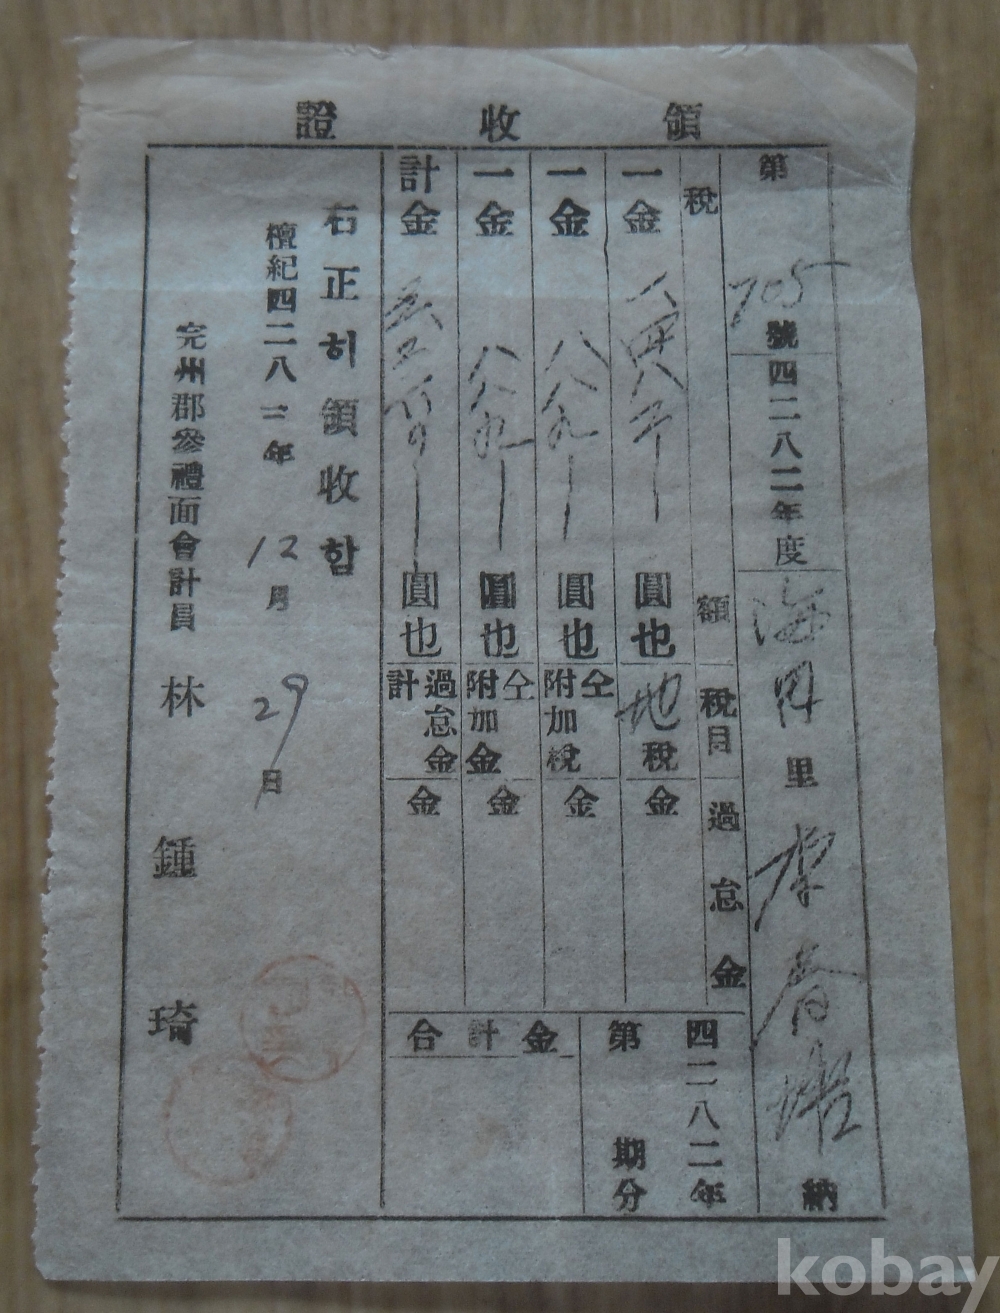 領收證
第705號 四二八二年度 海田里 李春 納
稅額 稅目 過怠金
一金 八四八 圓也 地稅 金
一金 八八九 圓也 仝附加稅 金
一金 八八九 圓也 仝附加金 金
計金 圓也 過怠金計 金
四二八二年
第 期分
合計金
右正히領收함
檀紀四二八三年 12月 29日
完州郡參禮面會計員 林鍾琦
kobay